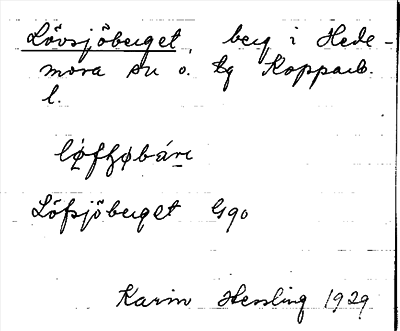 Lövsjöberget, berg i Hede-
mora sn o. tg Kopparb.
l.
Löfsjöberget G90
Karin Hessling 1929